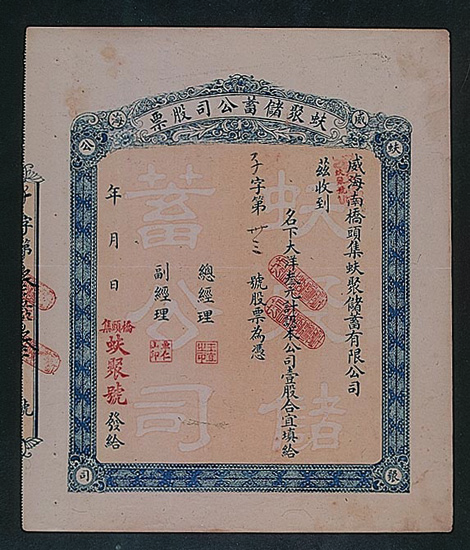 蚨聚儲蓄公司股票
威
海
蚨
公
銀
司
威海南橋頭集蚨聚儲蓄有限公司
茲收到
名下大洋叁元計認本公司壹股合宜填給
子字第 卅三 號股票為憑
總經理
副經理
年 月 日
橋頭集
蚨聚號
發給
蚨聚儲
蓄公司
子字第
號